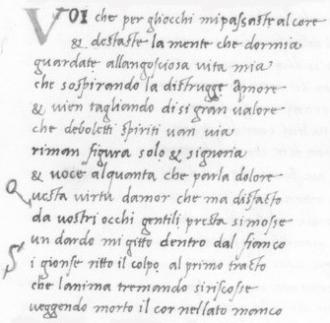 VOI che per gliocchi mi passaste al core
& destaste la mente che dormia
guardate allangosciosa vita mia
che sospirando la distrugge Amore
& vien tagliando di si gran valore
che deboletti spiriti van via
riman figura solo & signoria
& voce alquanta che parla dolore
Questa virtu damor che ma disfacto
da vostri occhi gentili presta si mosse
un dardo mi gitto dentro dal fianco
Si gionse ritto il colpo al primo tracto
che lanima tremando si riscosse
veggendo morto il cor nel lato manco